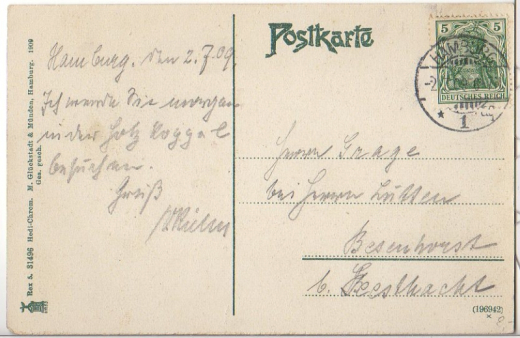 Postkarte
5 5
DEUTSCHES REICH
HAMBURG
1
Hamburg. den 2.7.09.
Ich werde Sie morgen
in der Holz Koppel
besuchen.
Gruß
Herrn Grage
bei Herrn Lütten
Besenhorst
b. Geesthacht
(196942)
Rex A. 31496 Hedi-Chrom. M. Glückstadt & Münden, Hamburg. 1909
Ges. gesch.